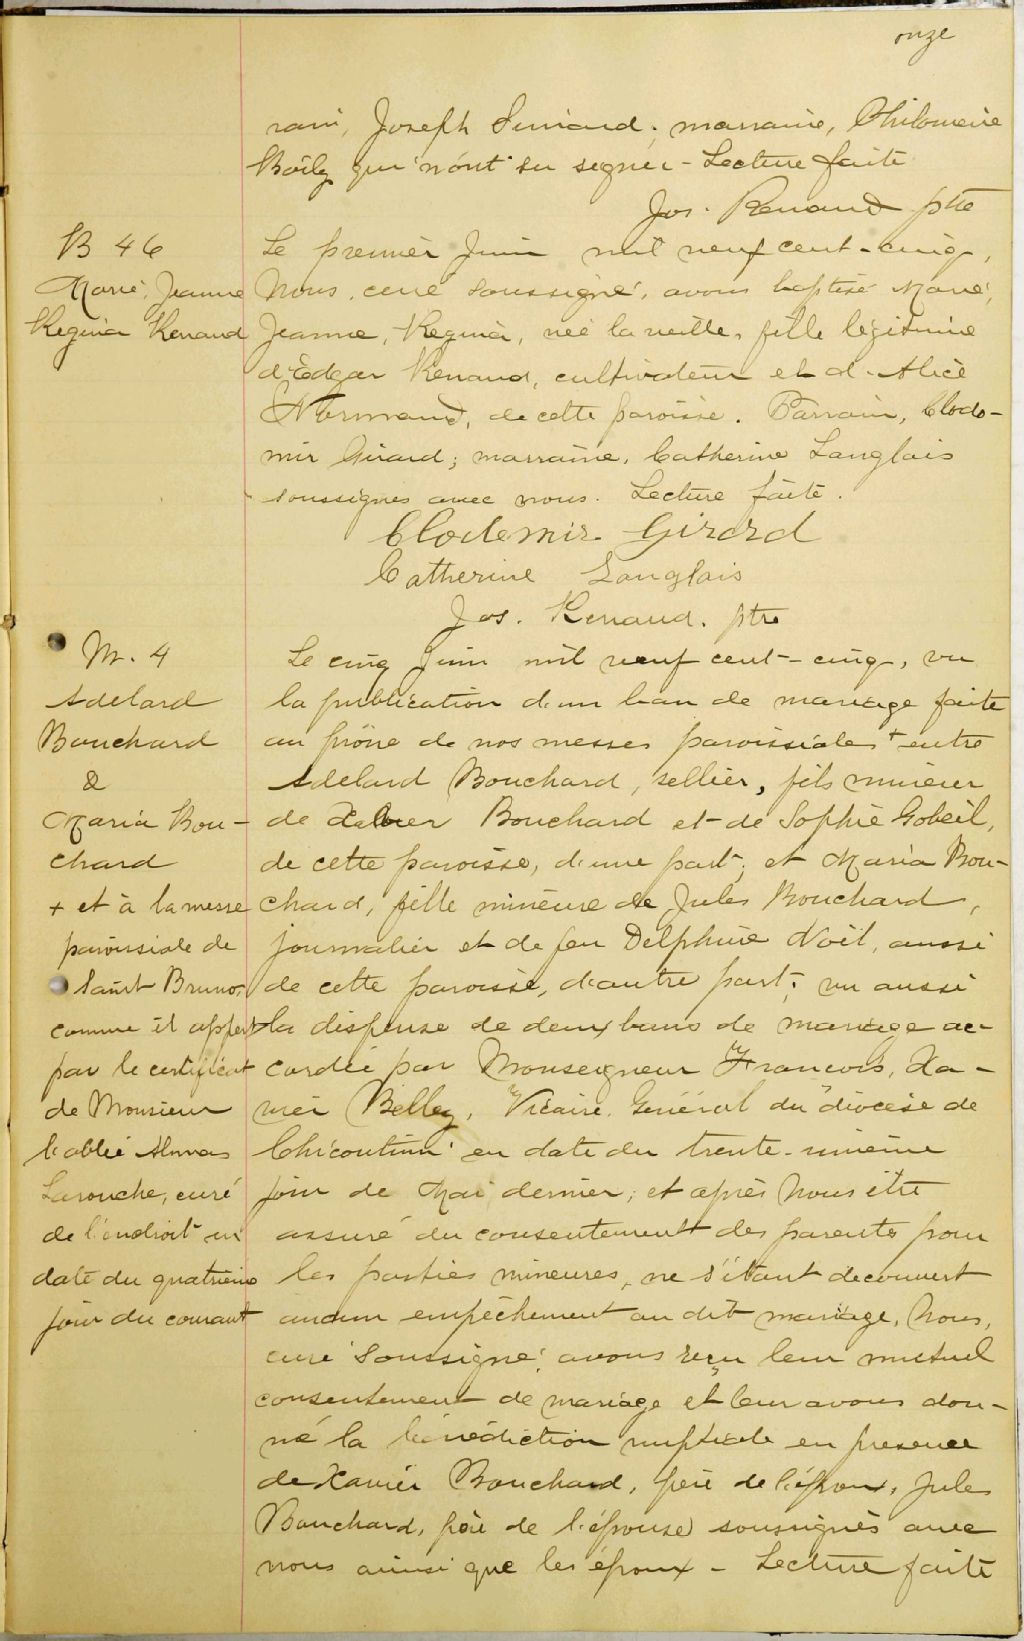 onze
rain, Joseph Simard; marraine, Philomène
Boily qui n'ont su signer - Lecture faite
Jos. Renaud ptre
B 46
Marie, Jeanne
Regina Renaud
Le premier Juin mil neuf cent-cinq,
Nous, curé soussigné, avons baptisé Marie,
Jeanne, Regina, née la veille, fille légitime
d'Edgar Renaud, cultivateur et d'Alice
Normand, de cette paroisse. Parrain, Clodo-
mir Girard; marraine, Catherine Langlais
soussignés avec nous. Lecture faite.
Clodemir Girard
Catherine Langlais
Jos. Renaud. ptre
M. 4
Adelard
Bouchard
&
Maria Bou-
chard
+ et à la messe
paroissiale de
Saint Bruno,
comme il appert
par le certificat
de Monsieur
l'abbé
Larouche, curé
de l'endroit en
date du quatrième
jour du courant
Le cinq Juin mil neuf cent-cinq, vu
la publication d'un ban de mariage faite
au prône de nos messes paroissiales + entre
Adelard Bouchard, sellier, fils mineur
de Bouchard et de Sophie Gobeil,
de cette paroisse, d'une part; et Maria Bou-
chard, fille mineure de Jules Bouchard,
journalier et de feu Delphine Noël, aussi
de cette paroisse, d'autre part; vu aussi
la dispense de deux bans de mariage ac-
cordée par Monseigneur François, Xa-
vier Belley, Vicaire Général du diocèse de
Chicoutimi en date du trente-unième
jour de Mai dernier; et après Nous être
assuré du consentement des parents pour
les parties mineures, ne s'étant découvert
aucun empêchement au dit mariage, Nous,
curé soussigné, avons reçu leur mutuel
consentement de mariage et leur avons don-
né la bénédiction nuptiale en presence
de Xavier Bouchard, père de l'époux, Jules
Bouchard, père de l'épouse soussignés avec
nous ainsi que les époux - Lecture faite